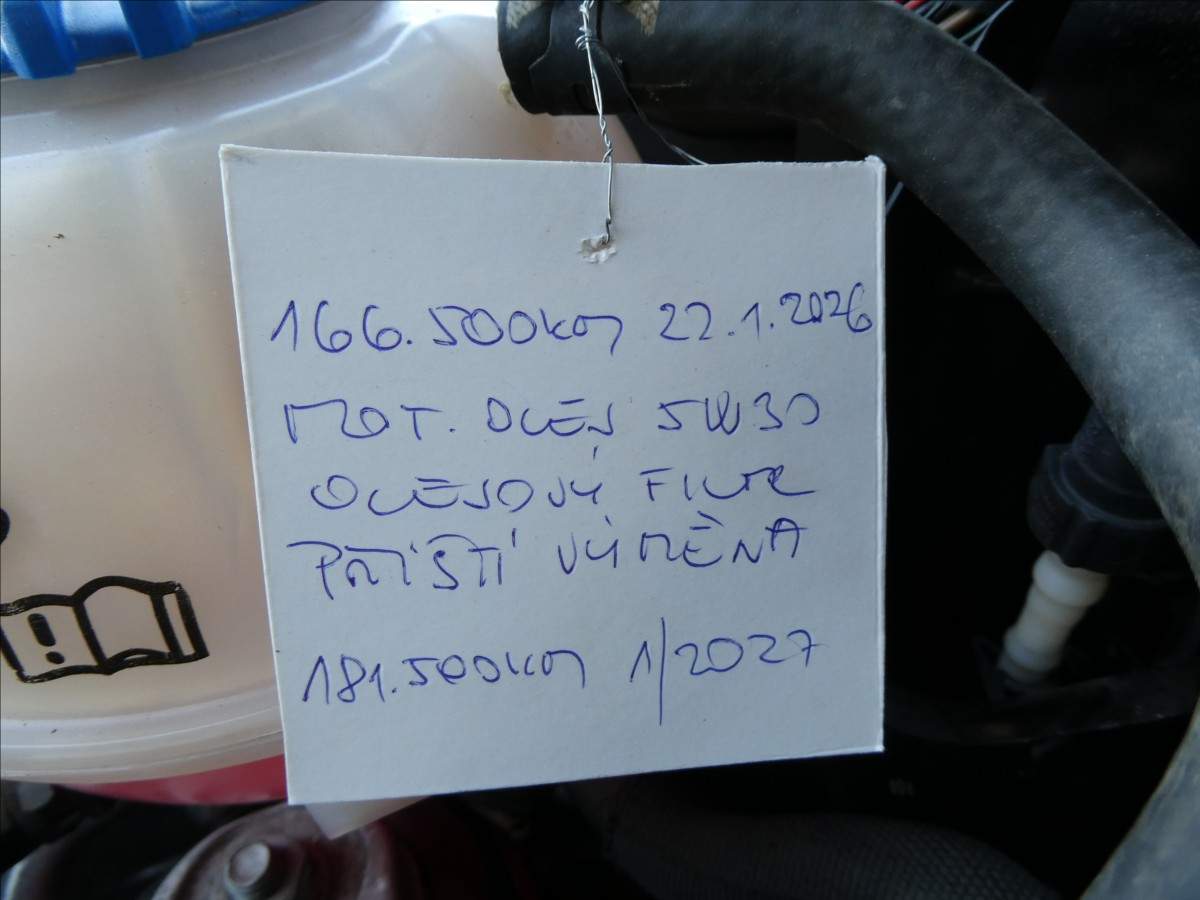 166.500km 22.1.2026
MOT. OLEJ 5W30
OLEJOVÝ FILTR
PŘÍŠTÍ VÝMĚNA
181.500km 1/2027